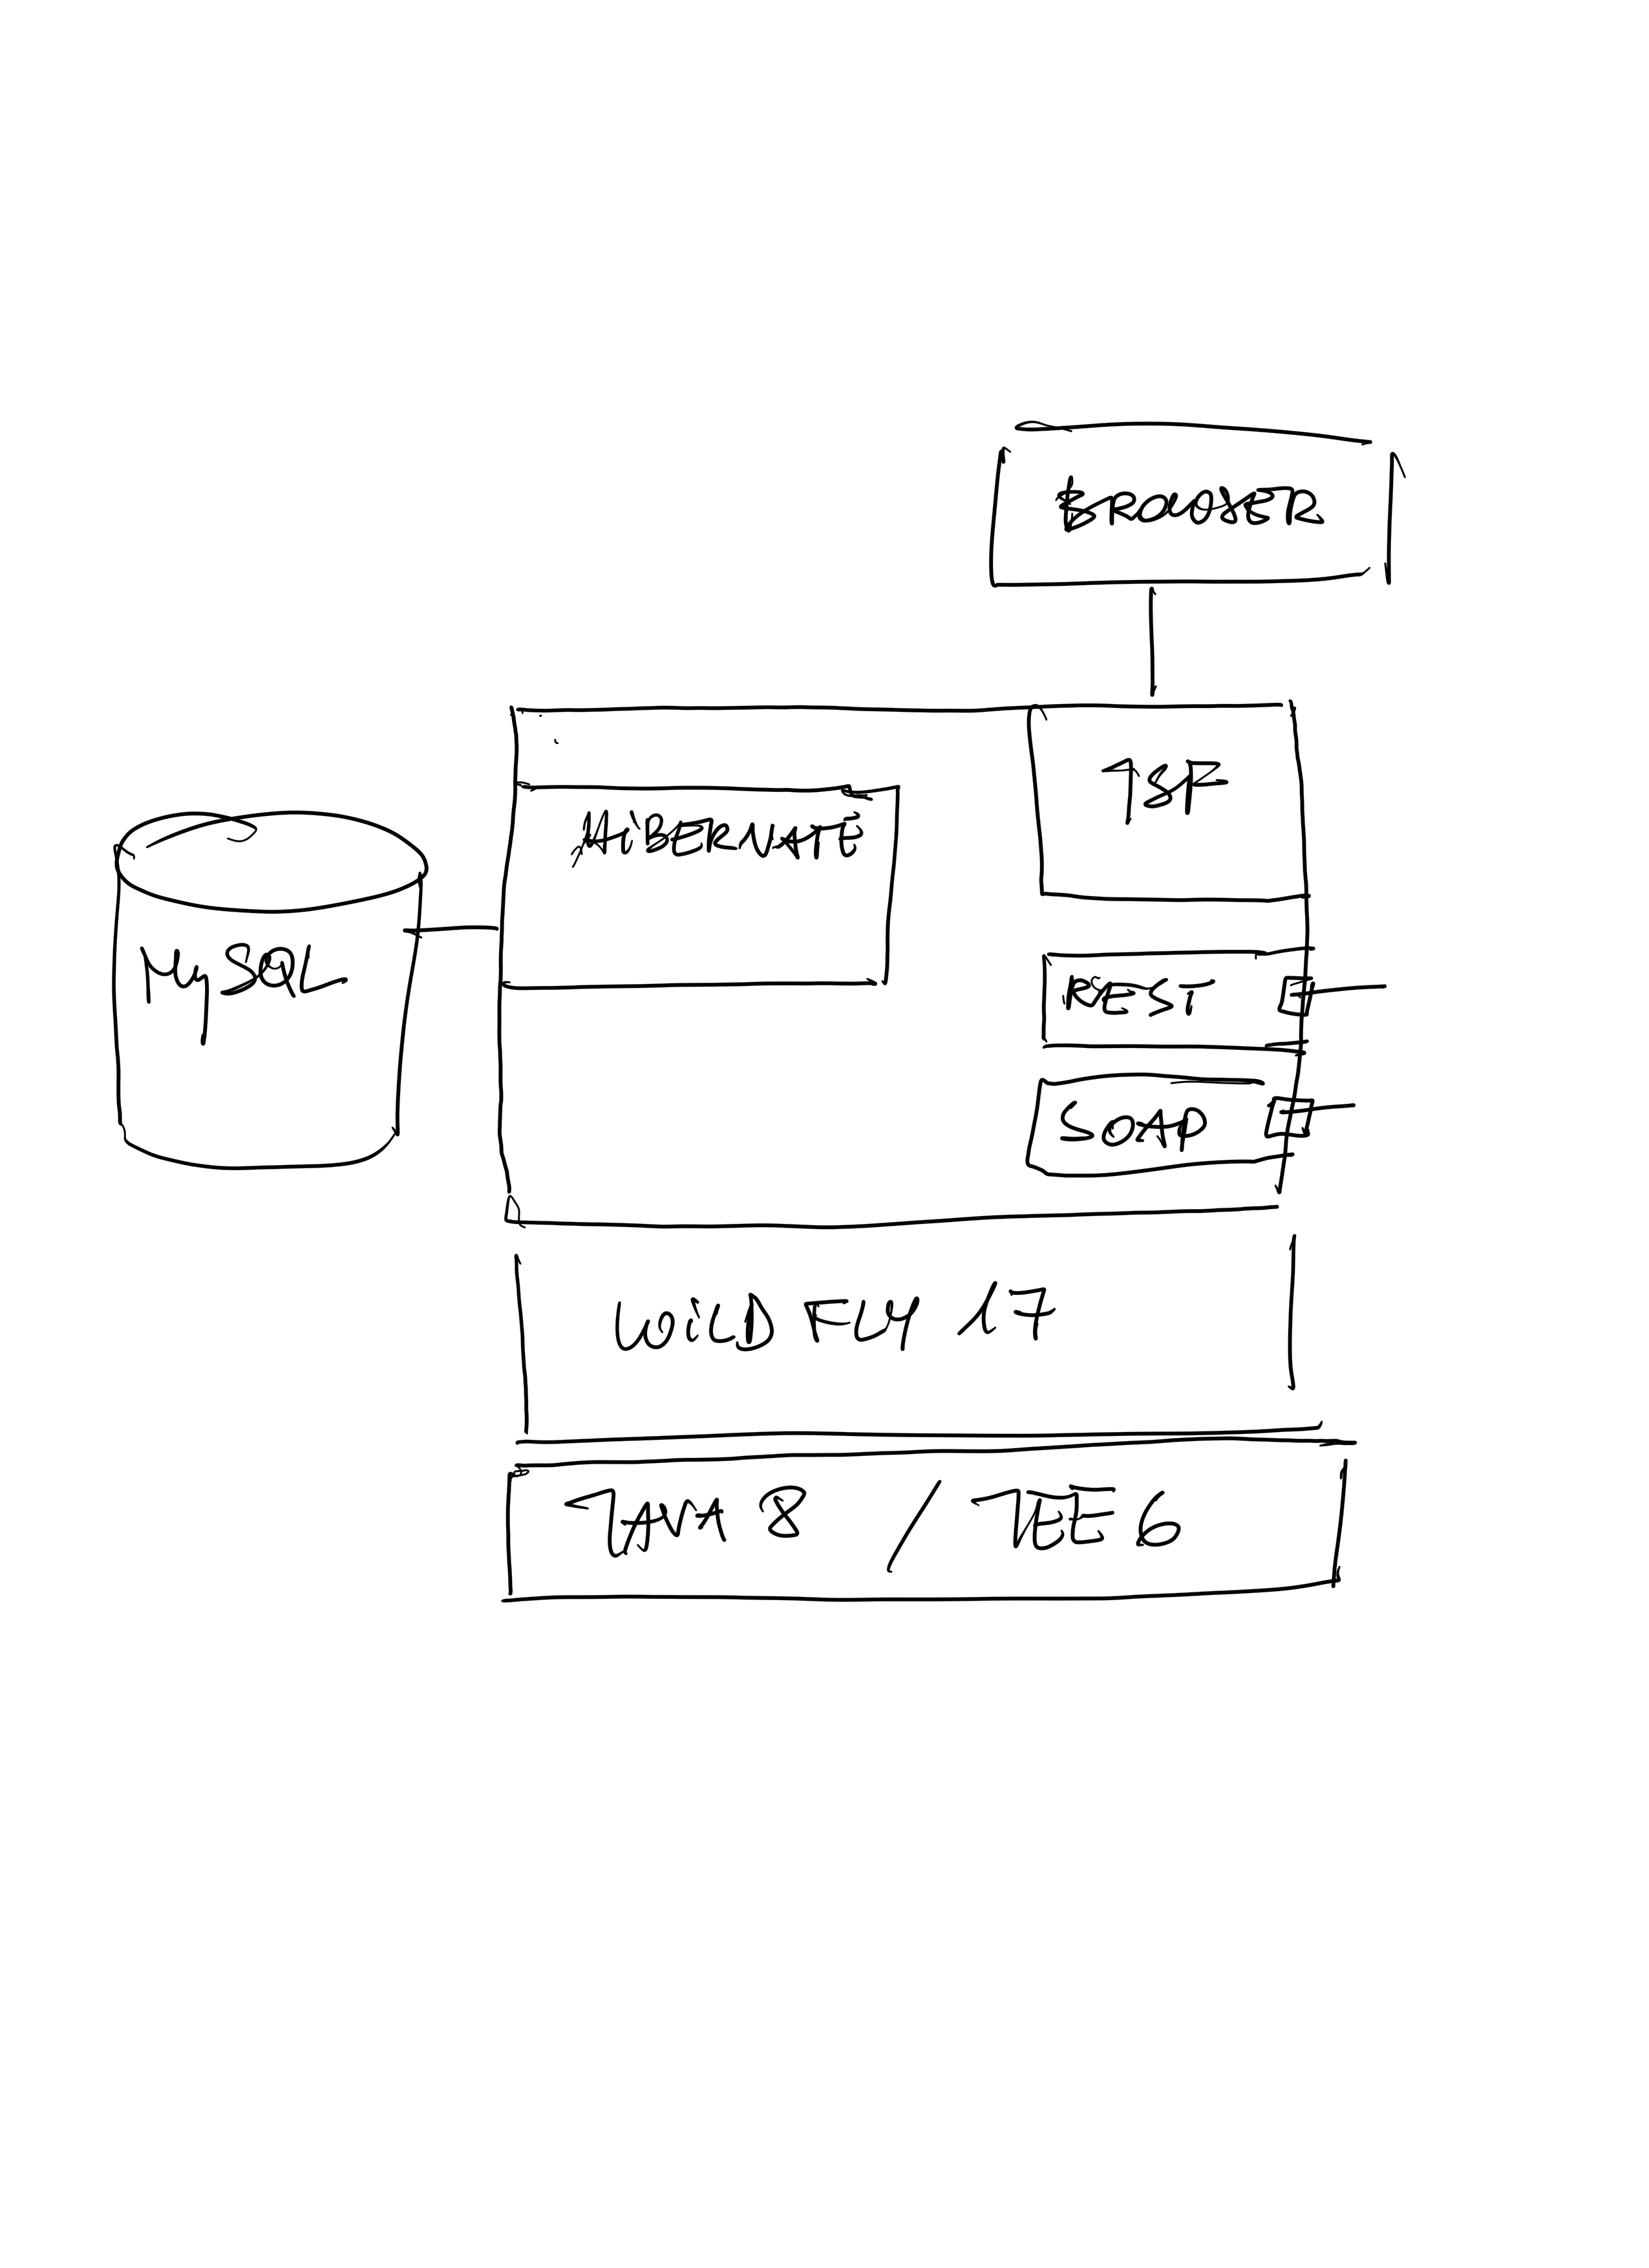 BROWSER
JSF
HIBERNATE
MySQL
REST
SOAP
WiLDFLY 17
JAVA 8 / JEE 6